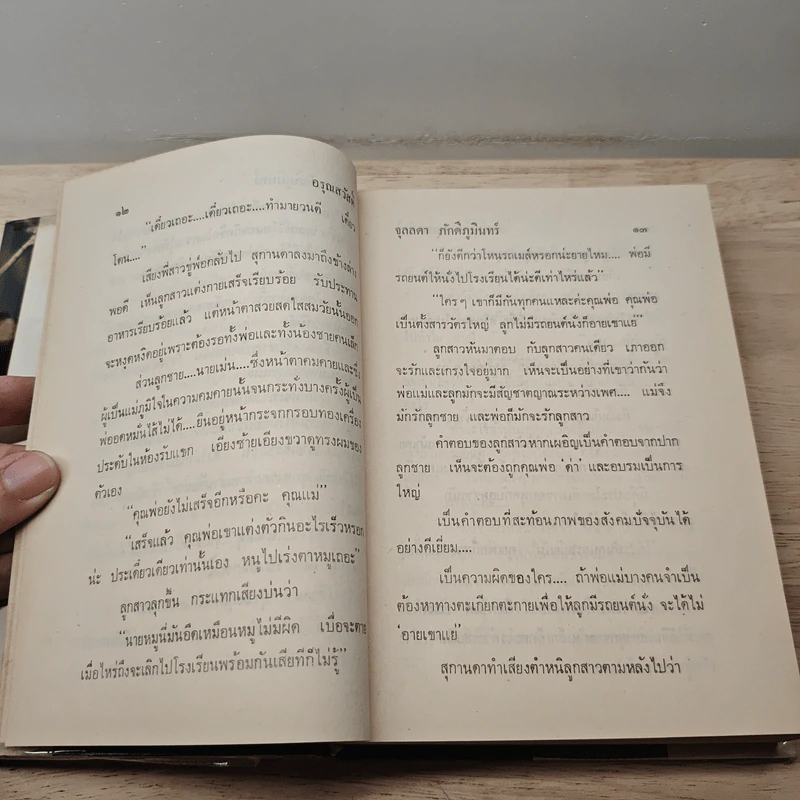 ๑๒ อรุณสวัสดิ์
"เดี๋ยวเถอะ....เดี๋ยวเถอะ....ทำมายวนดี เดี๋ยว
โดน...."
เสียงพี่สาวขู่ฟ็อกลับไป สุกานดาลงมาถึงข้างล่าง
พอดี เห็นลูกสาวแต่งกายเสร็จเรียบร้อย รับประทาน
อาหารเรียบร้อยแล้ว แต่หน้าตาสวยสดใสสมวัยนั้นออก
จะหงุดหงิดอยู่เพราะต้องรอทั้งพ่อและทั้งน้องชายคนเล็ก
ส่วนลูกชาย....นายเม่น....ซึ่งหน้าตาคมคายและซึ่ง
ผู้เป็นแม่ภูมิใจในความคมคายนั้นจนกระทั่งบางครั้งผู้เป็น
พ่ออดหมั่นไส้ไม่ได้....ยืนอยู่หน้ากระจกกรอบทองเครื่อง
ประดับในห้องรับแขก เอียงซ้ายเอียงขวาดูทรงผมของ
ตัวเอง
"คุณพ่อยังไม่เสร็จอีกหรือคะ คุณแม่"
"เสร็จแล้ว คุณพ่อเขาแต่งตัวกินอะไรเร็วหรอก
น่ะ ประเดี๋ยวเดียวเท่านั้นเอง หนูไปเร่งตาหมูเถอะ"
ลูกสาวลุกขึ้น กระแทกเสียงบ่นว่า
"นายหมูนี่มันอืดเหมือนหมูไม่มีผิด เบื่อจะตาย
เมื่อไหร่ถึงจะเลิกไปโรงเรียนพร้อมกันเสียทีก็ไม่รู้"
จุลลดา ภักดีภูมินทร์ ๑๓
"ก็ยังดีกว่าโหนรถเมล์หรอกน่ะยายไหม.... พ่อมี
รถยนต์ให้นั่งไปโรงเรียนได้น่ะดีเท่าไหร่แล้ว"
"ใครๆ เขาก็มีกันทุกคนแหละค่ะคุณพ่อ คุณพ่อ
เป็นตั้งสารวัตรใหญ่ ลูกไม่มีรถยนต์นั่งก็อายเขาแย่"
ลูกสาวหันมาตอบ กับลูกสาวคนเดียว เภาออก
จะรักและเกรงใจอยู่มาก เห็นจะเป็นอย่างที่เขาว่ากันว่า
พ่อแม่และลูกมักจะมีสัญชาตญาณระหว่างเพศ.... แม่จึง
มักรักลูกชาย และพ่อก็มักจะรักลูกสาว
คำตอบของลูกสาวหากเผอิญเป็นคำตอบจากปาก
ลูกชาย เห็นจะต้องถูกคุณพ่อ 'ด่า' และอบรมเป็นการ
ใหญ่
เป็นคำตอบที่สะท้อนภาพของสังคมปัจจุบันได้
อย่างดีเยี่ยม....
เป็นความผิดของใคร.... ถ้าพ่อแม่บางคนจำเป็น
ต้องหาทางตะเกียกตะกายเพื่อให้ลูกมีรถยนต์นั่ง จะได้ไม่
'อายเขาแย่'
สุกานดาทำเสียงตำหนิลูกสาวตามหลังไปว่า